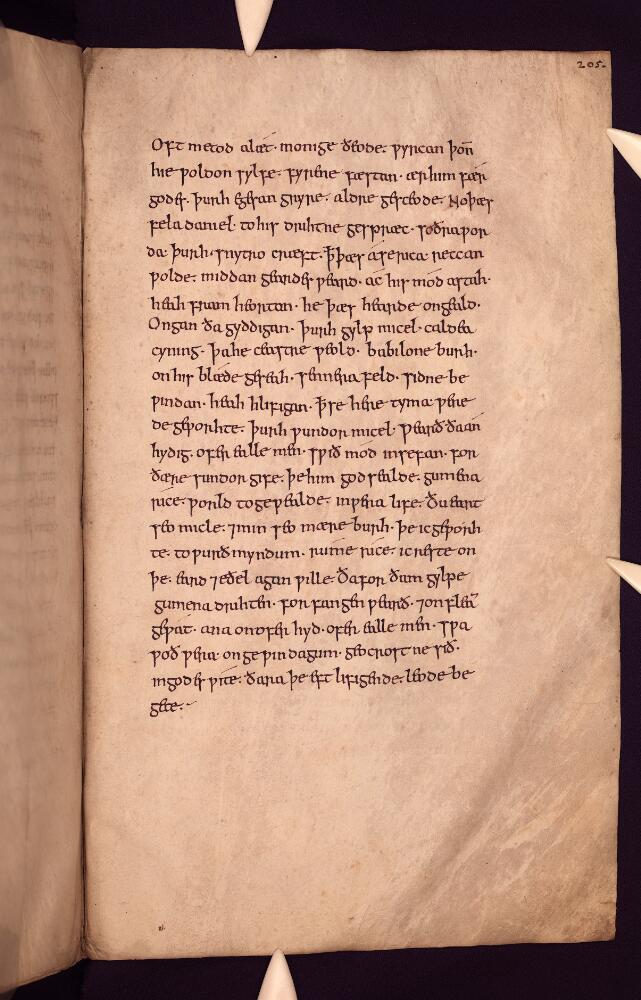 205.
Oft metod alæt· monige ðeode· ƿyrcan þoñ
hie ƿoldon sylfe· fyrene fæstan· ær him fær
godes· þurh egesan gryre· aldre gesceode· No þæs
fela daniel· to his drihtne gespræc· soðra ƿor
da· þurh snytro cræft· ꝥ þær á senica reccan
ƿolde· middan geardes ƿeard· ac his mod astah·
heah fram heortan· he þæs hearde ongeald·
Ongan ða gyddigan· þurh gylp micel· caldea
cyning· þa he ceastre ƿeold· babilone burh·
on his blæde geseah· sennera feld· sidne be
ƿindan· heah hlifigan· ꝥ se here tyma· ƿere
de geƿorhte· þurh ƿundor micel· ƿearð ða án
hydig· ofer ealle men· sƿið mod in sefan· for
ðære sundor gife· þe him god sealde· gumena
rice· ƿorld to geƿealde· in ƿera life· Ðu eart
seo micle· ⁊ min seo mære burh· þe ic geƿorh
te· to ƿurð myndum· rume rice· ic reste on
þe· eard ⁊ eðel agan ƿille· Ða for ðam gylpe
gumena drihten· forfangen ƿearð· ⁊ on fleā
geƿat· ana on ofer hyd· ofer ealle men· sƿa
ƿoð ƿera· on geƿin dagum· geocrost ne sið·
in godes ƿite· ðara þe eft lifigende· leode be
gete·